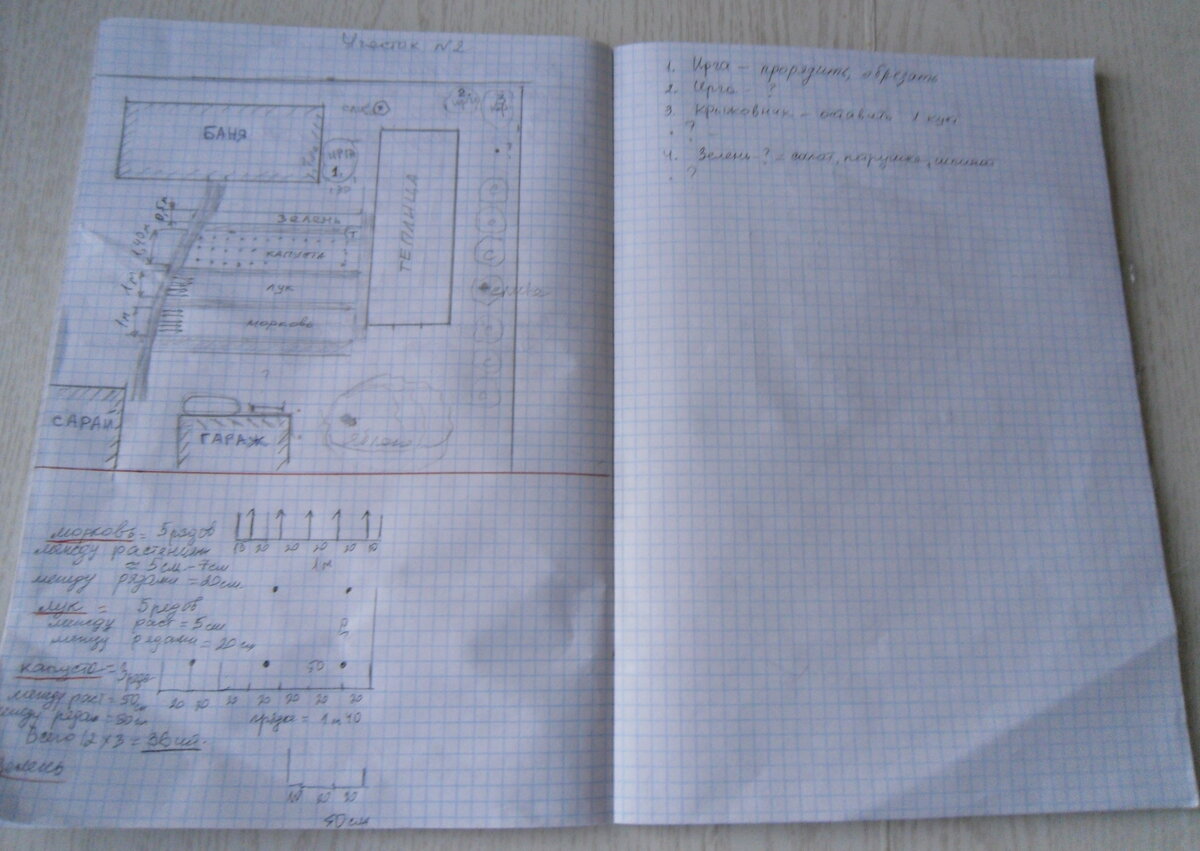 Участок N2
БАНЯ
ИРГА
1.
2
3
ТЕПЛИЦА
зелень
капуста
лук
морковь
1,40м
1м
1м
слива
?
САРАЙ
ГАРАЖ
морковь = 5 рядов
между растениям
≈ 5см-7см
между рядами = 20см
20 20 20 20
1м
лук = 5 рядов
между раст = 5см
между рядами = 20см
капуста = 3 ряда
50
между раст = 50
между рядам = 50см
20 20 20 20 20 20
грядка = 1м 40
Всего 12 х 3 = 36 шт.
зелень
40см
1. Ирга - проредить, обрезать
2. Ирга ?
3. Крыжовник - оставить 1 куст
?
4. Зелень-? = салат, петрушка, шпинат
?